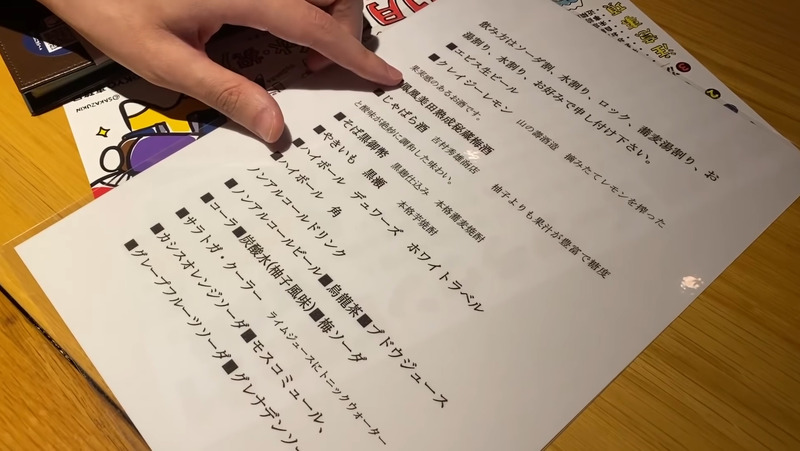 飲み方はソーダ割、水割り、ロック、蕎麦湯割り、お
湯割り、水割り、お好みで申し付け下さい。
■ヱビス生ビール
■クレイジーレモン 山の壽酒造 摘みたてレモンを搾った
果実感のあるお酒です。
鳳凰美田熟成秘蔵梅酒
■じゃばら酒 吉村秀雄商店 柚子よりも果汁が豊富で糖度
と酸味が絶妙に調和した味わい。
■そば黒御幣 黒麹仕込み 本格蕎麦焼酎
■やきいも 黒瀬 本格芋焼酎
■ハイボール デュワーズ ホワイトラベル
■ハイボール 角
ノンアルコールドリンク
■ノンアルコールビール■烏龍茶■ブドウジュース
■コーラ■炭酸水(柚子風味)■梅ソーダ
■サラトガ・クーラー ライムジュースにトニックウォーター
■カシスオレンジソーダ■モスコミュール、
■グレープフルーツソーダ■グレナデンソー
@SAKAZUKIN